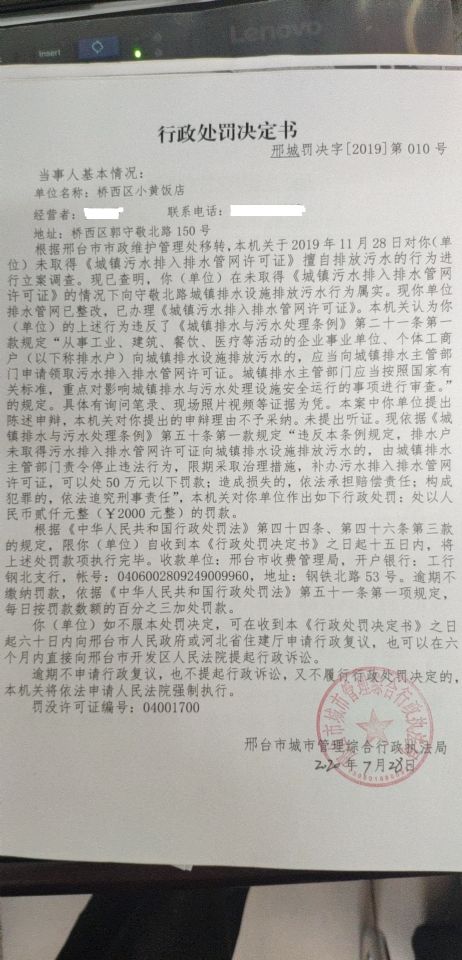 Lenovo
Insert
行政处罚决定书
邢城罚决字[2019]第 010 号
当事人基本情况：
单位名称：桥西区小黄饭店
经营者：
联系电话：
地址：桥西区郭守敬北路 150 号
根据邢台市市政维护管理处移转，本机关于 2019 年 11 月 28 日对你(单
位）未取得《城镇污水排入排水管网许可证》擅自排放污水的行为进
行立案调查。现已查明，你（单位）在未取得《城镇污水排入排水管网
许可证》的情况下向守敬北路城镇排水设施排放污水行为属实。现你单位
排水管网已整改，已办理《城镇污水排入排水管网许可证》。本机关认为你
（单位）的上述行为违反了《城镇排水与污水处理条例》第二十一条第一
款规定“从事工业、建筑、餐饮、医疗等活动的企业事业单位、个体工商
户（以下称排水户）向城镇排水设施排放污水的，应当向城镇排水主管部
门申请领取污水排入排水管网许可证。城镇排水主管部门应当按照国家有
关标准，重点对影响城镇排水与污水处理设施安全运行的事项进行审查。”
的规定。具体有询问笔录、现场照片视频等证据为凭。本案中你单位提出
陈述申辩，本机关对你提出的申辩理由不予采纳。未提出听证。现依据《城
镇排水与水处理条例》第五十条第一款规定“违反本条例规定，排水户
未取得污水排入排水管网许可证向城镇排水设施排放污水的，由城镇排水
主管部门责令停止违法行为，限期采取治理措施，补办污水排入排水管网
许可证，可以处 50 万元以下罚款；造成损失的，依法承担赔偿责任；构成
犯罪的，依法追究刑事责任”，本机关对你单位作出如下行政处罚：处以人
民币贰仟元整（￥2000 元整）的罚款。
根据《中华人民共和国行政处罚法》第四十四条、第四十六条第三款
的规定，限你（单位）自收到本《行政处罚决定书》之日起十五日内，将
上述处罚款项执行完毕。收款单位：邢台市收费管理局，开户银行：工行
钢北支行，帐号：0406002809249009960，地址：钢铁北路 53 号。逾期不
缴纳罚款，依据《中华人民共和国行政处罚法》第五十一条第一项规定，
每日按罚款数额的百分之三加处罚款。
你（单位）如不服本处罚决定，可在收到本《行政处罚决定书》之日
起六十日内向邢台市人民政府或河北省住建厅申请行政复议，也可以在六
个月内直接向邢台市开发区人民法院提起行政诉讼。
逾期不申请行政复议，也不提起行政诉讼，又不履行行政处罚决定的，
本机关将依法申请人民法院强制执行。
罚没许可证编号：04001700
邢台市城市管理综合行政执法局
2020 年 7 月 28 日